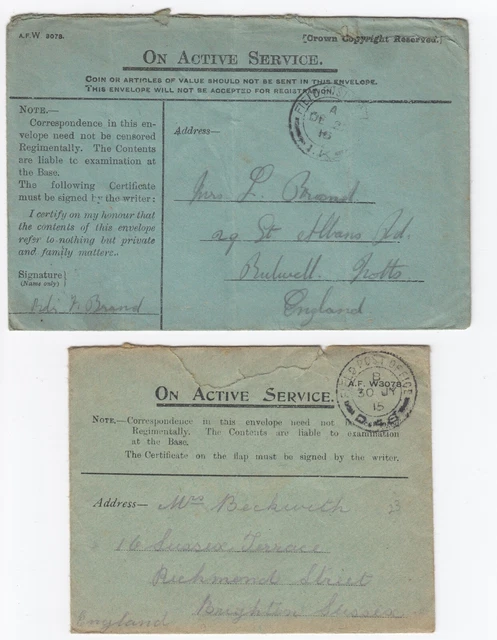 A.F. W 3078.
[Crown Copyright Reserved.]
ON ACTIVE SERVICE.
COIN OR ARTICLES OF VALUE SHOULD NOT BE SENT IN THIS ENVELOPE.
THIS ENVELOPE WILL NOT BE ACCEPTED FOR REGISTRATION.
NOTE.—
Correspondence in this en-
velope need not be censored
Regimentally. The Contents
are liable to examination at
the Base.
The following Certificate
must be signed by the writer:
I certify on my honour that
the contents of this envelope
refer to nothing but private
and family matters.
Signature
(Name only)
Brand
FIELD
A
DE
16
Address—
Mrs L. Brand
29 St Albans Rd.
Bulwell. Notts
England
FIELD POST OFFICE
B
30 JY
15
D.48
A.F. W3078.
ON ACTIVE SERVICE.
NOTE.—Correspondence in this envelope need not
Regimentally. The Contents are liable to examination
at the Base.
The Certificate on the flap must be signed by the writer.
Address—
Mrs Beckwith
16 Sussex Terrace
Richmond Street
Brighton Sussex
England